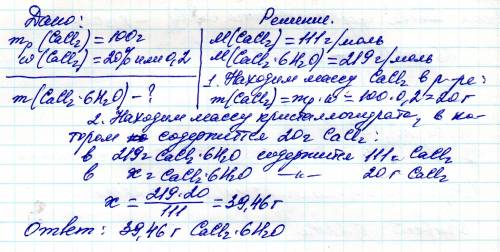 Дано:
mр (CaCl₂) = 100г
ω(CaCl₂) = 20% или 0,2
m(CaCl₂·6H₂O) - ?
Решение.
M(CaCl₂) = 111 г/моль
M(CaCl₂·6H₂O) = 219 г/моль
1. Находим массу CaCl₂ в р-ре:
m(CaCl₂) = mр·ω = 100·0,2 = 20г
2. Находим массу кристаллогидрата, в ко-
тором содержится 20г CaCl₂:
в 219г CaCl₂·6H₂O содержится 111г CaCl₂
в x г CaCl₂·6H₂O –"– 20г CaCl₂
x = 219·20/111 = 39,46г
Ответ: 39,46г CaCl₂·6H₂O